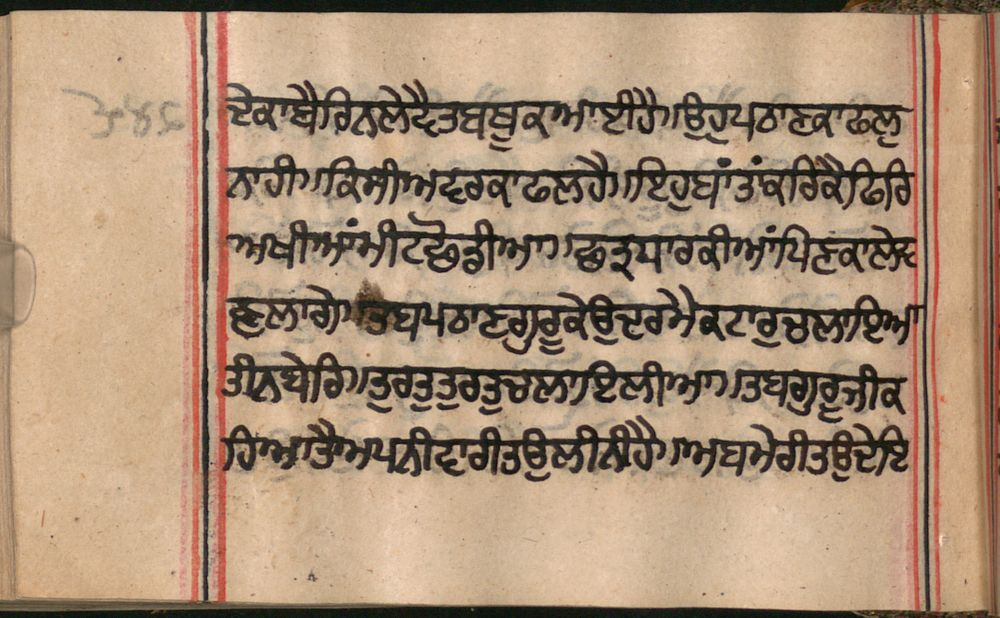 ਦੇਕਾਬੈਰਿਨਲੇਵੈਤਬਬੂਕਆਈਹੈ॥ਉਹੁਪਠਾਣਕਾਫਲੁ
ਨਾਹੀ॥ਕਿਸੀਅਵਰਕਾਫਲਹੈ॥ਇਹੁਬਾਤਾਂਕਰਿਕੈਫਿਰਿ
ਅਖੀਆਂਮੀਟਛੋਡੀਆ॥ਛੜਪਾਰਕੀਆਂਪਿਣਕਾਲੇਵ
ਣਲਾਗੇ॥ਤਬਪਠਾਣਗੁਰੂਕੇਉਦਰਮੈਕਟਾਰੁਚਲਾਇਆ
ਤੀਨਬੇਰਿ॥ਤੁਰਤੁਤੁਰਤੁਚਲਾਇਲੀਆ॥ਤਬਗੁਰੂਜੀਕ
ਹਿਆਤੈਅਪਨੀਵਾਰੀਤਉਲੀਨੀਹੈ॥ਅਬਮੇਰੀਤਉਦੇਇ